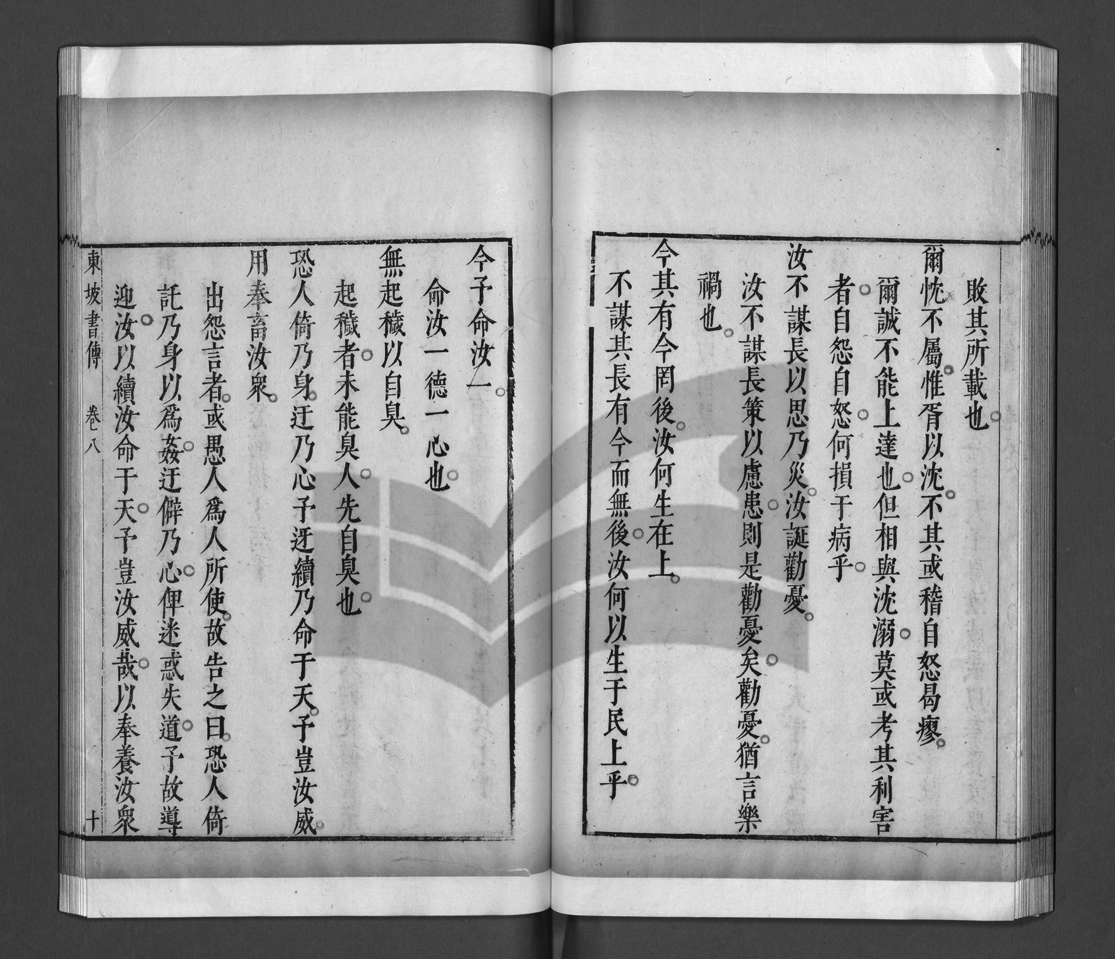 敗其所載也。
爾忱不屬。惟胥以沈。不其或稽自怒曷瘳。
爾誠不能上達也。但相與沈溺。莫或考其利害
者。自怨自怒。何損于病乎。
汝不謀長以思乃災。汝誕勸憂。
汝不謀長策以慮患。則是勸憂矣。勸憂。猶言樂
禍也。
今其有今罔後。汝何生在上。
不謀其長有今而無後。汝何以生于民上乎。
今予命汝一。
命汝一德一心也。
無起穢以自臭。
起穢者。未能臭人。先自臭也。
恐人倚乃身。迂乃心予迓續乃命于天。予豈汝威。
用奉畜汝衆。
出怨言者。或愚人爲人所使。故告之曰。恐人倚
託乃身以爲姦。迂僻乃心。俾迷惑失道。予故導
迎汝。以續汝命于天。予豈汝威哉。以奉養汝衆
東坡書傳 卷八 十